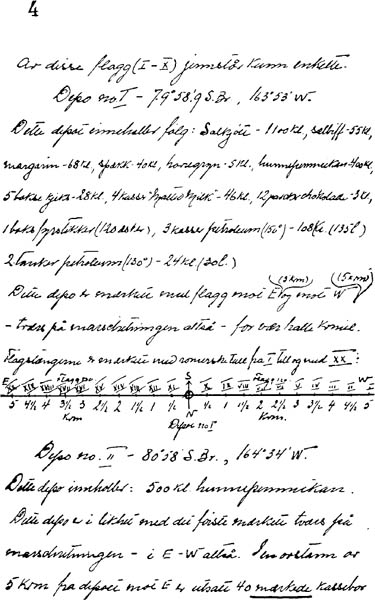 4
Av disse flagg (I - X) finnes kun enkelte.
Depo no I - 79°58'9 S.Br, 163°53' W.
Dette depot inneholder følg: Selkjøtt - 1100 kl, selbiff - 55 kl,
margarin - 68 kl, spækk 40 kl, havregryn - 5 kl, hundepemmikan 400 kl,
5 bokse kjeks - 28 kl, 4 kasser Malted Milk - 46 kl, 12 chokolade - 3 kl,
1 boks fyrstikker (120 æsker), 3 kasse petroleum (150°) - 108 kl. (135 l)
2 tanker petroleum (130°) - 24 kl (30 l.)
(5 km) (5 km)
Dette depo er mærket med flagg mot E og mot W
- tvers på marschretningen altså - for hver halle kmil.
Flagstængerne er mærket med romerske tall fra I till og med XX:
E XX XIX XVIII XVII XVI XV XIV XIII XII XI S X IX VIII VII VI V IV III II I W
5 4½ 4 3½ 3 2½ 2 1½ 1 ½ N ½ 1 1½ 2 2½ 3 3½ 4 4½ 5
Km Depot no I Km.
Depo no. II - 80°58' S.Br., 164°34' W.
Dette depo inneholler: 500 kl. hunnepemmikan.
Dette depo er i likhet med det første mærket tvers på
marschretningen - i E - W altså. I en avstann av
5 Km fra depoet mot E er utsatt 40 markede kassebor